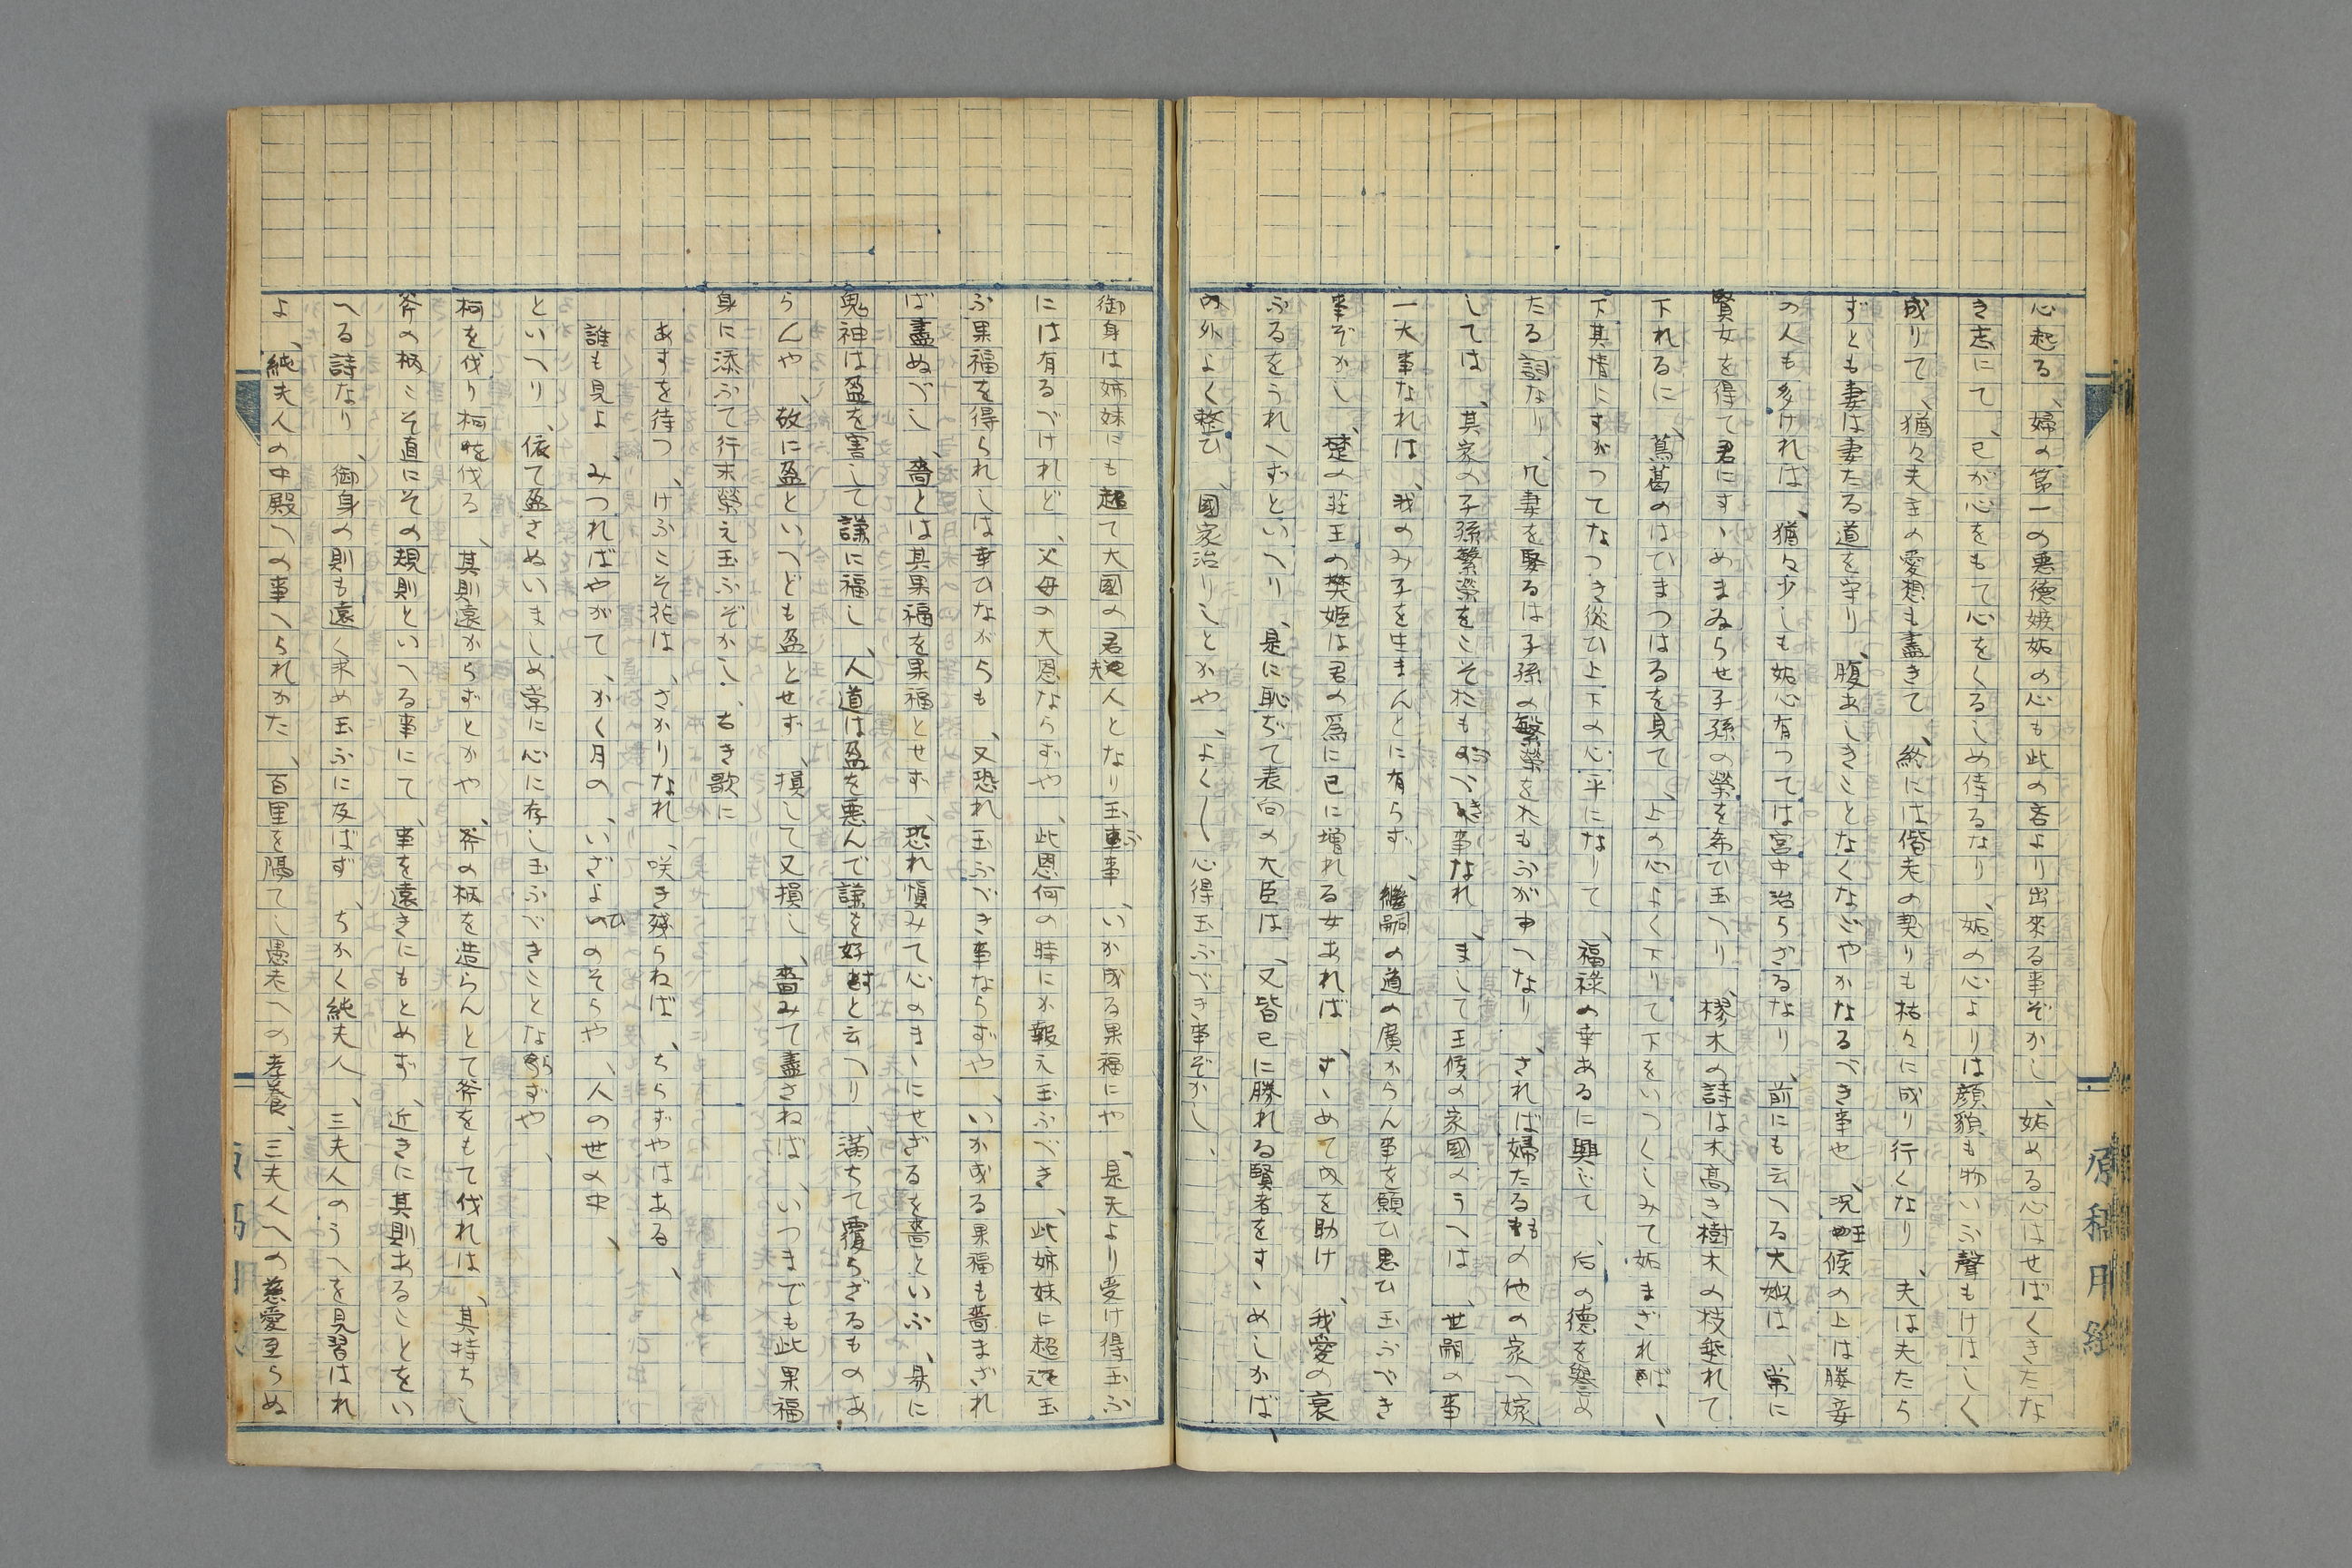 心起る、婦の第一の悪徳嫉妬の心も此の吝より出來る事ぞかし、妬める心はせばくきたな
き志にて、己が心をもて心をくるしめ侍るなり、妬の心よりは顔貌も物いふ聲もけはしく
成りて、猶々夫主の愛想も盡きて、終には偕老の契りも枯々に成り行くなり、夫は夫たら
ずとも妻は妻たる道を守り、腹あしきことなくないやかなるべき事也、況王候の上は媵妾
の人も多ければ、猶々少しも妬心有つては宮中治らざるなり、前にも云へる大姒は、常に
賢女を得て君にすゝめまゐらせ子孫の榮を希ひ玉へり、樛木の詩は木高き樹木の枝埀れて
下れるに、蔦葛のはひまつはるを見て、上の心よく下りて下をいつくしみて妬まざれば、
下其情にすがつてなつき從ひ上下の心平になりて、福祿の幸あるに興じて、后の德を譽め
たる詞なり、凡妻を娶るは子孫の繁榮をたもふが中へなり、されば婦たるもの他の家へ嫁
しては、其家の子孫繁榮をこそたもつべき事なれ、まして王候の家國のうへは、世嗣の事
一大事なれは、我のみ子を生まんとに有らず、繼嗣の道の廣からん事を願ひ思ひ玉ふべき
事ぞかし、楚の莊王の樊姬は君の爲に已に增れる女あれば、すゝめて内を助け、我愛の衰
ふるをうれへずといへり、是に恥ぢて表向の大臣は、又皆已に勝れる賢者をすゝめしかば、
内外よく整ひ、國家治りしとかや、よく〱心得玉ふべき事ぞかし、
御身は姊妹にも超て大國の君夫人となり玉ふ事、いか成る果福にや、是天より受け得玉ふ
には有るべけれど、父母の大恩ならずや、此恩何の時にか報え玉ふべき、此姊妹に超玉
ふ果福を得られしは幸ひながらも、又恐れ玉ふべき事ならずや、いか成る果福も嗇まざれ
ば盡ぬべし、嗇とは其果福を果福とせず、恐れ愼みて心のまゝにせざるを嗇といふ、易に
鬼神は盈を害して謙に福し、人道は盈を悪んで謙を好と云へり、滿ちて覆らざるものあ
らんや、故に盈といへども盈とせず、損して又損し、嗇みて盡さねば、いつまでも此果福
身に添ふて行末榮え玉ふぞかし、古き歌に
あすを待つ、けふこそ花は、さかりなれ、咲き殘らねば、ちらずやはある、
誰も見よ、みつればやがて、かく月の、いざよひのそらや、人の世の中、
といへり、依て盈さぬいましめ常に心に存し玉ふべきことならずや、
柯を伐り柯を伐る、其則遠からずとかや、斧の柄を造らんとて斧をもて伐れは、其持ちし
斧の柄こそ直にその規則といへる事にて、事を遠きにもとめず、近きに其則あることをい
へる詩なり、御身の則も遠く求め玉ふに及ばず、ちかく純夫人、三夫人のうへを見習はれ
よ、純夫人の中殿への事へられかた、百里を隔てし愚老への孝養、三夫人への慈愛至らぬ